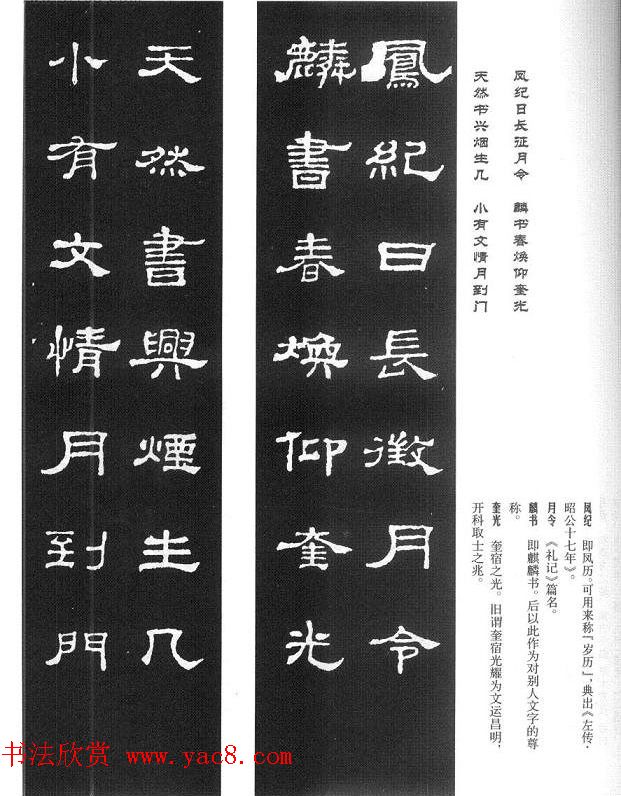 凤纪日长征月令　麟书春焕仰奎光
天然书兴烟生几　小有文情月到门
鳳紀日長徵月令
麟書春焕仰奎光
天然書興煙生几
小有文情月到門
凤纪　即凤历。可用来称「岁历」，典出《左传·
昭公十七年》。
月令　《礼记》篇名。
麟书　即麒麟书。后以此作为对别人文字的尊
称。
奎光　奎宿之光。旧谓奎宿光耀为文运昌明，
开科取士之兆。
书法欣赏 www.yac8.com